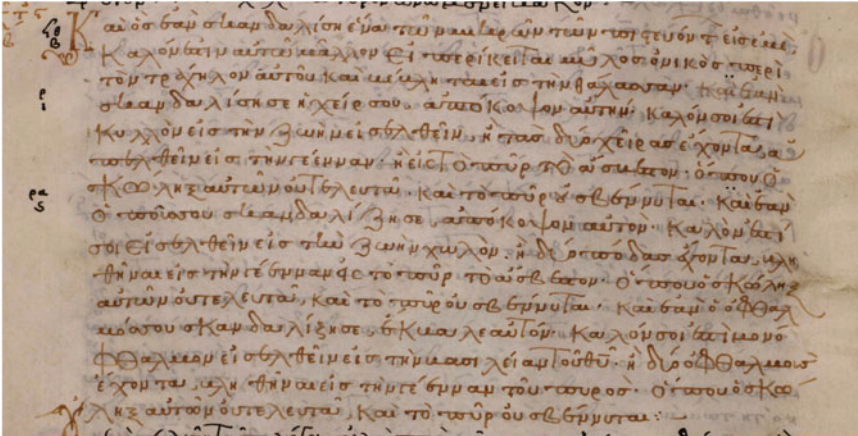 Καὶ ὃς ἐὰν σκανδαλίση ἕνα τῶν μικρῶν τῶν πιστευόντ εἰς ἐμὲ,
καλόν ἐστιν αὐτῶ μᾶλλον εἰ περίκειται μύλος ὀνικὸς περὶ
τὸν τράχηλον αὐτοῦ καὶ βληται εἰς τὴν θάλασσαν. Καὶ ἐὰν
σκανδαλίση σε ἡ χείρ σου, ἀπόκοψον αὐτήν. καλόν σοι ἐστὶ
κυλλὸν εἰς τὴν ζωὴν εἰσελθεῖν, ἢ τὰς δύο χεῖρας ἔχοντα, ἀ
πελθεῖν εἰς τὴν γέενναν. εἰς τὸ πῦρ τὸ ἄσβεστον. ὅπου ὁ
σκώληξ αὐτῶν οὐ τελευτᾶ. καὶ τὸ πῦρ οὐ σβέννυται. Καὶ ἐὰν
ὁ πούς σου σκανδαλίζη σε, ἀπόκοψον αὐτόν. καλόν ἐστί
σοι εἰσελθεῖν εἰς τὴν ζωὴν χωλὸν. ἢ δύο πόδας ἔχοντα, βλη
θῆναι εἰς τὴν γέενναν εἰς τὸ πῦρ τὸ ἄσβεστον. ὅπου ὁ σκώληξ
αὐτῶν οὐ τελευτᾶ, καὶ τὸ πῦρ οὐ σβέννυται. Καὶ ἐὰν ὁ ὀφθαλ
μός σου σκανδαλίζη σε, ἔκβαλε αὐτόν. καλόν σοι ἐστὶ μονό
φθαλμον εἰσελθεῖν εἰς τὴν βασιλείαν τοῦ θυ. ἢ δύο ὀφθαλμοὺς
ἔχοντα, βληθῆναι εἰς τὴν γέενναν τοῦ πυρός. ὅπου ὁ σκώ
ληξ αὐτῶν οὐ τελευτᾶ, καὶ τὸ πῦρ οὐ σβέννυται: